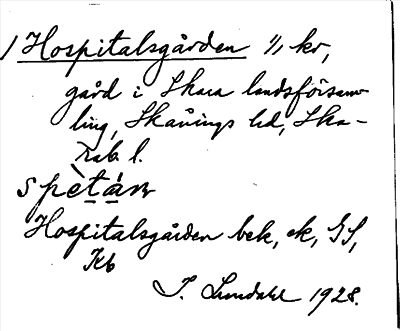 1 Hospitalsgården 1/1 kr,
gård i Skara landsförsam
ling, Skånings hd, Ska-
rab. l.
spètán
Hospitalsgården bek, ek, GS,
Kb
I. Lundahl 1928.